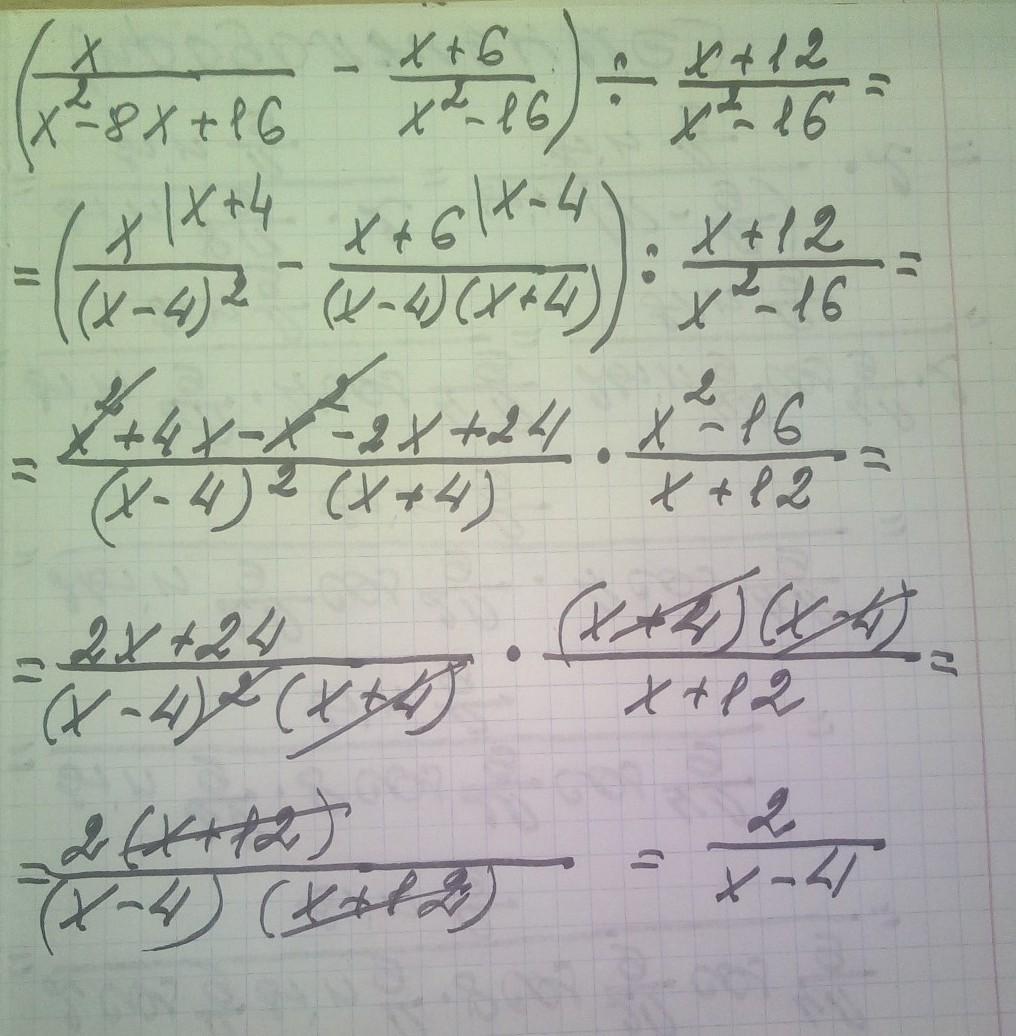 (x/(x²-8x+16) - (x+6)/(x²-16)) ÷ (x+12)/(x²-16) =
= (x|x+4/(x-4)² - x+6|x-4/((x-4)(x+4))) : (x+12)/(x²-16) =
= (x²+4x-x²-2x+24)/((x-4)²(x+4)) · (x²-16)/(x+12) =
= (2x+24)/((x-4)²(x+4)) · ((x+4)(x-4))/(x+12) =
= 2(x+12)/((x-4)(x+12)) = 2/(x-4)